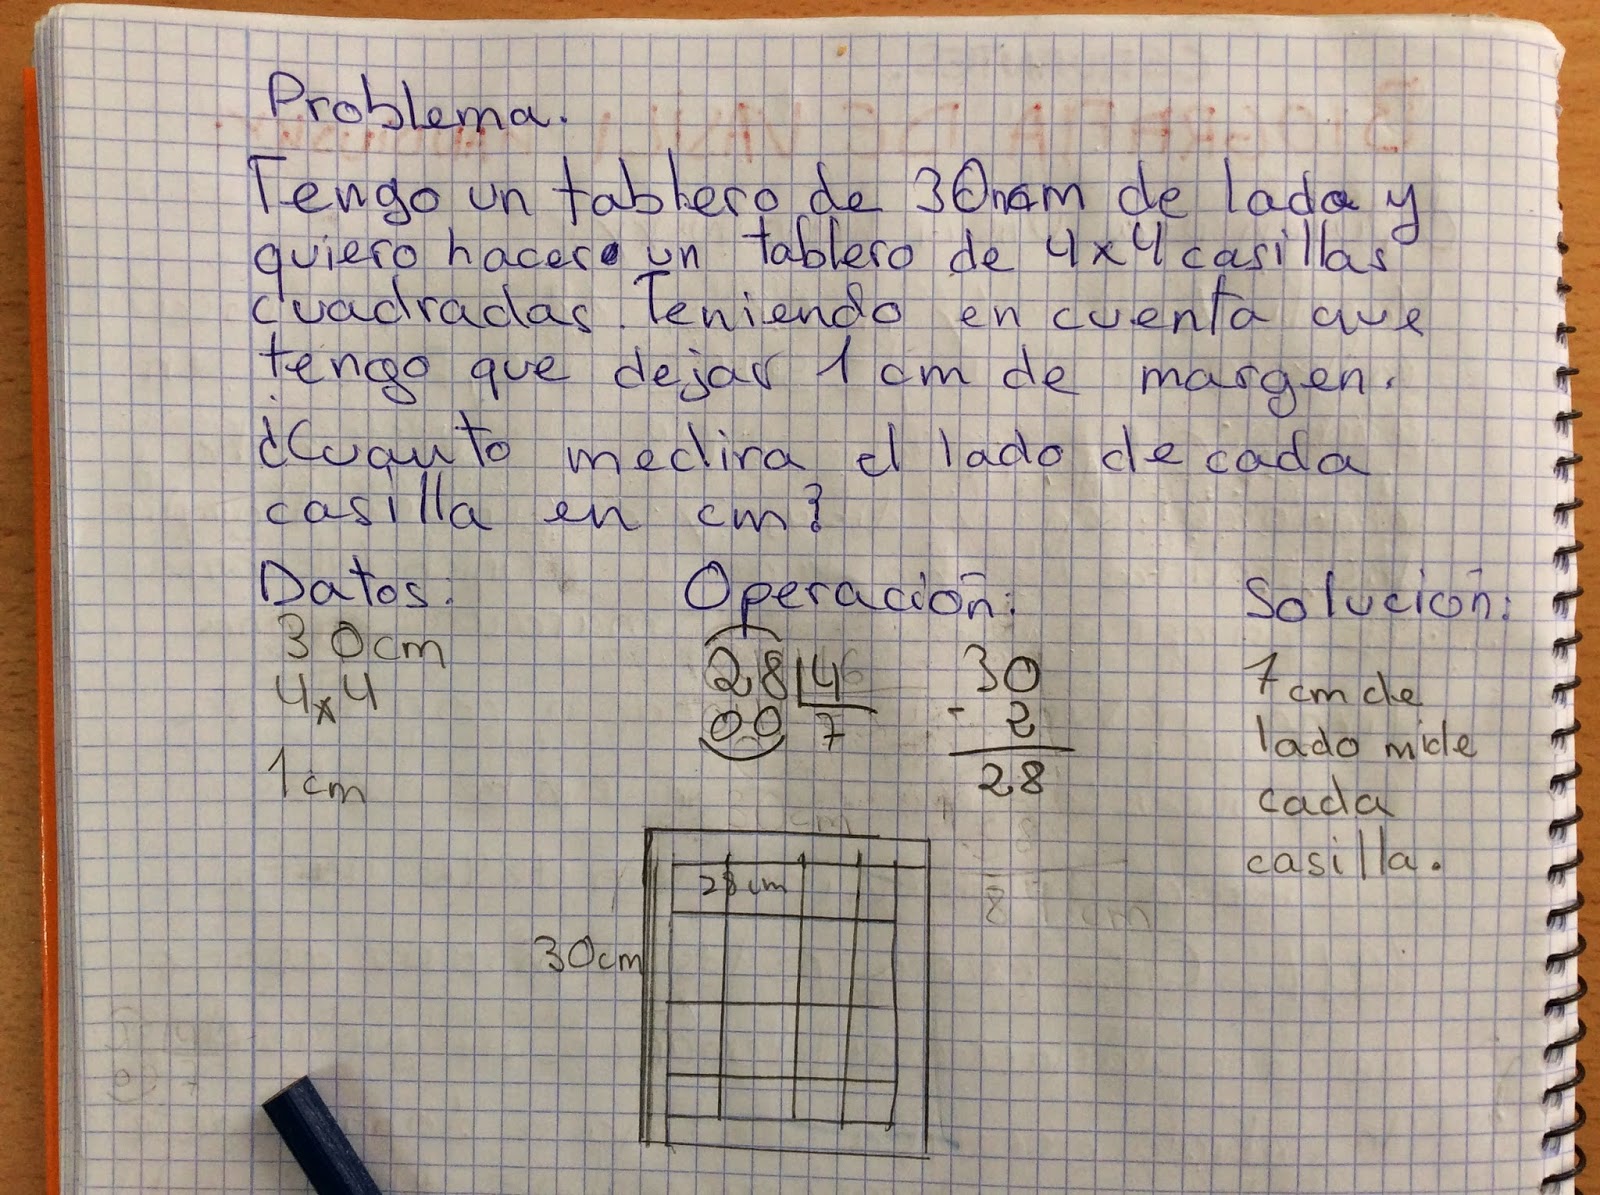 Problema.
Tengo un tablero de 30 cm de lado y
quiero hacer un tablero de 4x4 casillas
cuadradas. Teniendo en cuenta que
tengo que dejar 1 cm de margen.
¿Cuanto medira el lado de cada
casilla en cm?
Datos: Operación: Solución:
30cm 28 4 30 7cm de
4x4 00 7 - 2 lado mide
1cm 28 cada
casilla.
28cm
30cm